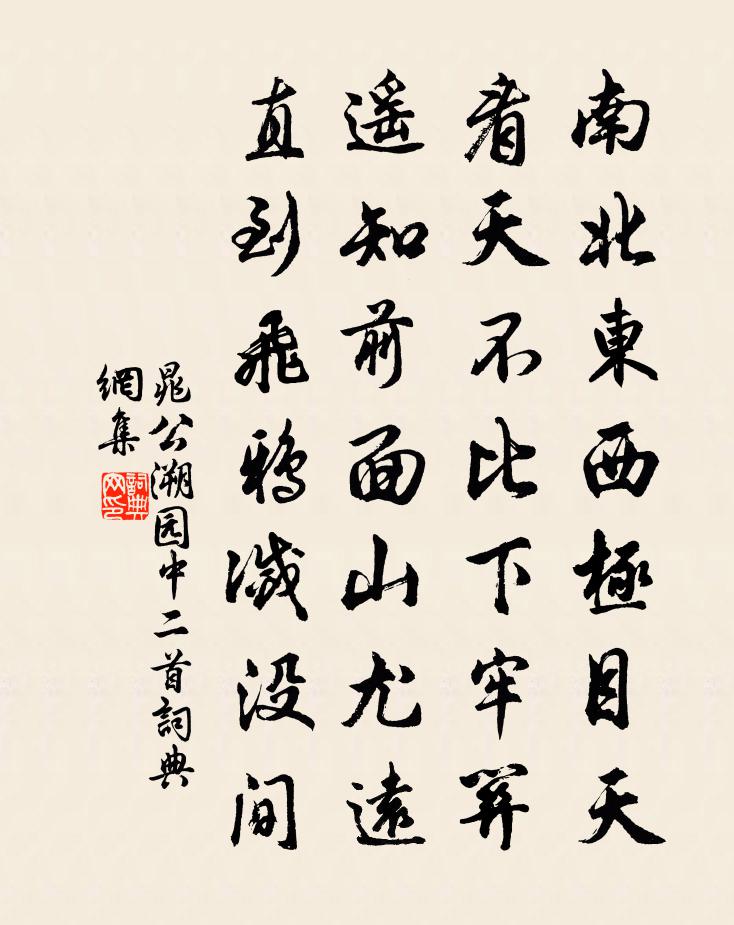 南北東西極目天
看天不比下牢葬
遥知前面山尤遠
直到飛鴉滅没間
晁公溯园中二首詞典
網集
詞典
网印